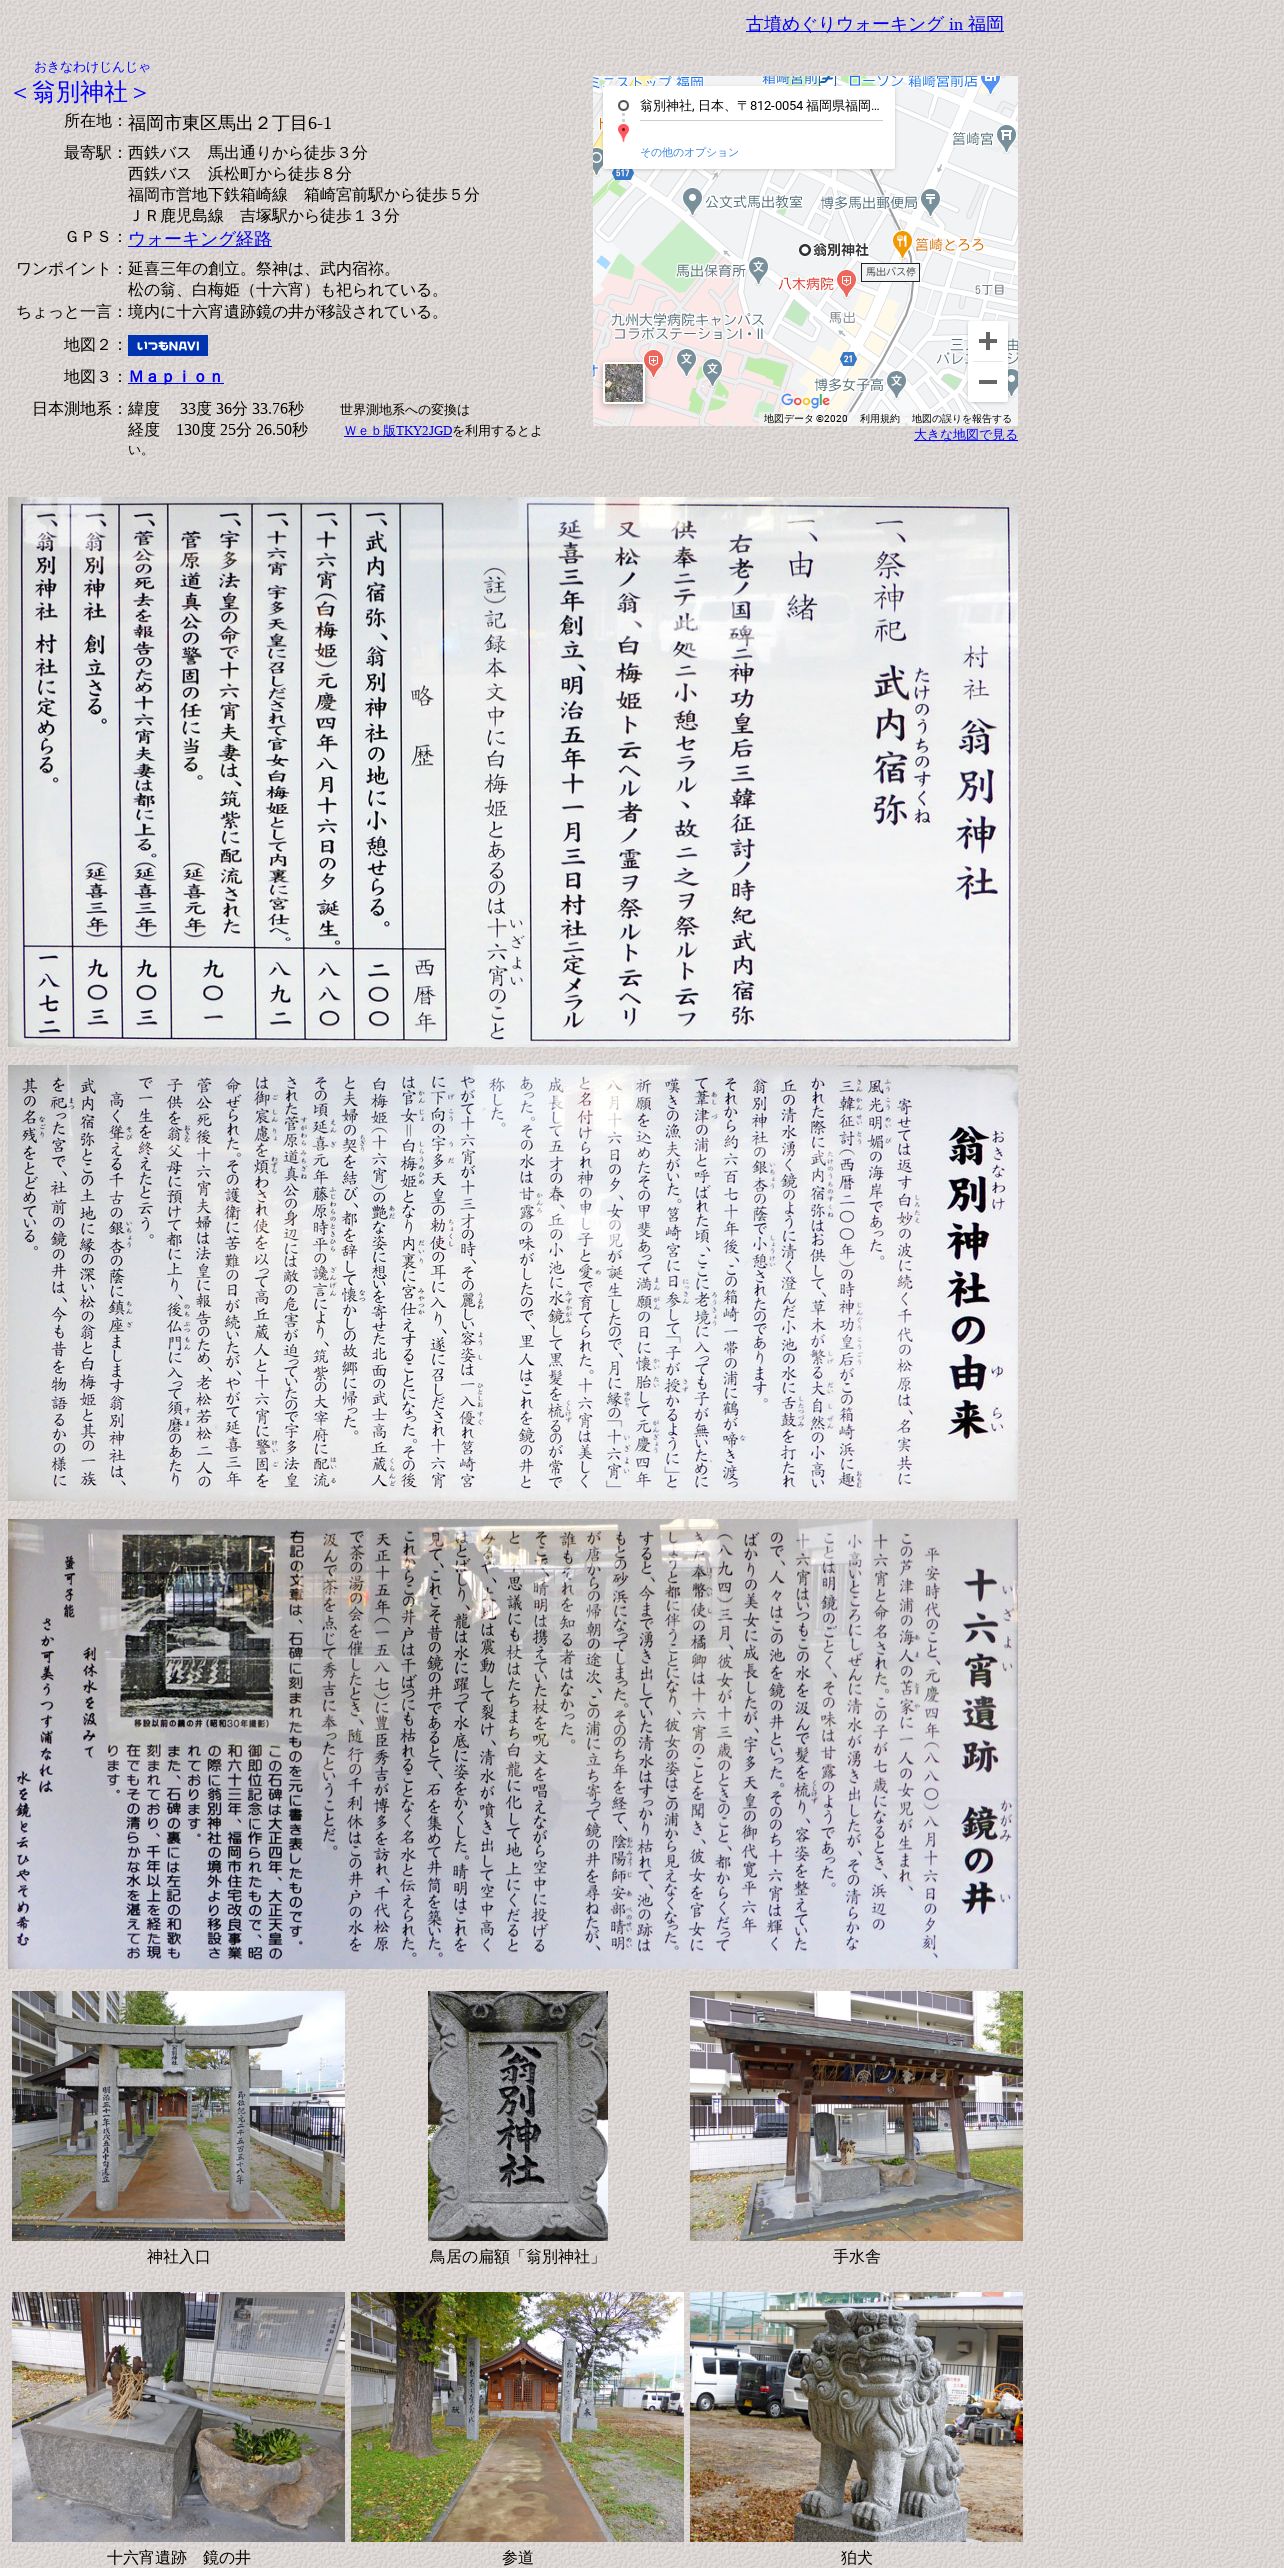 古墳めぐりウォーキング in 福岡
おきなわけじんじゃ
＜翁別神社＞
所在地：福岡市東区馬出２丁目6-1
最寄駅：西鉄バス　馬出通りから徒歩３分
西鉄バス　浜松町から徒歩８分
福岡市営地下鉄箱崎線　箱崎宮前駅から徒歩５分
ＪＲ鹿児島線　吉塚駅から徒歩１３分
ＧＰＳ：ウォーキング経路
ワンポイント：延喜三年の創立。祭神は、武内宿祢。
松の翁、白梅姫（十六宵）も祀られている。
ちょっと一言：境内に十六宵遺跡鏡の井が移設されている。
地図２：いつもNAVI
地図３：Ｍａｐｉｏｎ
日本測地系：緯度　33度 36分 33.76秒　世界測地系への変換は
経度　130度 25分 26.50秒　Ｗｅｂ版TKY2JGDを利用するとよ
い。
ミニストップ 福岡
箱崎宮前駅
ローソン 箱崎宮前店
翁別神社, 日本、〒812-0054 福岡県福岡...
その他のオプション
筥崎宮
517
公文式馬出教室
博多馬出郵便局
翁別神社
筥崎とろろ
馬出保育所
馬出バス停
八木病院
5丁目
九州大学病院キャンパス
コラボステーションI・II
馬出
21
博多女子高
Google
地図データ ©2020　利用規約　地図の誤りを報告する
大きな地図で見る
村社 翁別神社
一、祭神祀 武内宿弥
たけのうちのすくね
一、由緒
右老ノ国碑ニ神功皇后三韓征討ノ時紀武内宿弥
供奉ニテ此処ニ小憩セラル、故ニ之ヲ祭ルト云フ
又松ノ翁、白梅姫ト云ヘル者ノ霊ヲ祭ルト云ヘリ
延喜三年創立、明治五年十一月三日村社ニ定メラル
（註）記録本文中に白梅姫とあるのは十六宵のこと
いざよい
略歴　西暦年
一、武内宿弥、翁別神社の地に小憩せらる。　二〇〇
一、十六宵（白梅姫）元慶四年八月十六日の夕 誕生。　八八〇
一、十六宵 宇多天皇に召しだされて官女白梅姫として内裏に宮仕へ。　八九二
一、宇多法皇の命で十六宵夫妻は、筑紫に配流された
菅原道真公の警固の任に当る。　（延喜元年）　九〇一
一、菅公の死去を報告のため十六宵夫妻は都に上る。（延喜三年）　九〇三
一、翁別神社 創立さる。　（延喜三年）　九〇三
一、翁別神社 村社に定めらる。　一八七二
おきなわけ　ゆらい
翁別神社の由来
寄せては返す白妙の波に続く千代の松原は、名実共に
風光明媚の海岸であった。
三韓征討（西暦二〇〇年）の時神功皇后がこの箱崎浜に趣
かれた際に武内宿弥はお供して、草木が繁る大自然の小高い
丘の清水湧く鏡のように清く澄んだ小池の水に舌鼓を打たれ
翁別神社の銀杏の蔭で小憩されたのであります。
それから約六百七十年後、この箱崎一帯の浦に鶴が啼き渡っ
て葦津の浦と呼ばれた頃、ここに老境に入っても子が無いために
嘆きの漁夫がいた。筥崎宮に日参して「子が授かるように」と
祈願を込めたその甲斐あって満願の日に懐胎して元慶四年
八月十六日の夕、女の児が誕生したので、月に縁の「十六宵」
と名付けられ神の申し子と愛で育てられた。十六宵は美しく
成長して五才の春、丘の小池に水鏡して黒髪を梳るのが常で
あった。その水は甘露の味がしたので、里人はこれを鏡の井と
称した。
やがて十六宵が十三才の時、その麗しい容姿は一入優れ筥崎宮
に下向の宇多天皇の勅使の耳に入り、遂に召しだされ十六宵
は官女＝白梅姫となり内裏に宮仕えすることになった。その後
白梅姫（十六宵）の艶な姿に想いを寄せた北面の武士高丘蔵人
と夫婦の契を結び、都を辞して懐かしの故郷に帰った。
その頃延喜元年藤原時平の讒言により、筑紫の大宰府に配流
された菅原道真公の身辺には敵の危害が迫っていたので宇多法皇
は御宸慮を煩わされ使を以って高丘蔵人と十六宵に警固を
命ぜられた。その護衛に苦難の日が続いたが、やがて延喜三年
菅公死後十六宵夫婦は法皇に報告のため、老松若松二人の
子供を翁父母に預けて都に上り、後仏門に入って須磨のあたり
で一生を終えたと云う。
高く聳える千古の銀杏の蔭に鎮座まします翁別神社は、
武内宿弥とこの土地に縁の深い松の翁と白梅姫と其の一族
を祀った宮で、社前の鏡の井は、今も昔を物語るかの様に
其の名残をとどめている。
いざよい　かがみ　い
十六宵遺跡　鏡の井
平安時代のこと、元慶四年（八八〇）八月十六日の夕刻、
この芦津浦の海人の苫家に一人の女児が生まれ、
十六宵と命名された。この子が七歳になるとき、浜辺の
小高いところにしぜんに清水が湧き出したが、その清らかな
ことは明鏡のごとく、その味は甘露のようであった。
十六宵はいつもこの水を汲んで髪を梳り、容姿を整えていた
ので、人々はこの池を鏡の井といった。そののち十六宵は輝く
ばかりの美女に成長したが、宇多天皇の御代寛平六年
（八九四）三月、彼女が十三歳のときのこと、都からくだって
きた奉幣使の橘卿は十六宵のことを聞き、彼女を官女に
しようと都に伴うことになり、彼女の姿はこの浦から見えなくなった。
すると、今まで湧き出していた清水はすっかり枯れて、池の跡は
もとの砂浜になってしまった。そののち年を経て、陰陽師安部晴明
が唐からの帰朝の途次、この浦に立ち寄って鏡の井を尋ねたが、
誰もそれを知る者はなかった。
そこで、晴明は携えていた杖を呪文を唱えながら空中に投げる
と、不思議にも杖はたちまち白龍に化して地上にくだると
みるや、大地は震動して裂け、清水が噴き出して空中高く
ほとばしり、龍は水に躍って水底に姿をかくした。晴明はこれを
見て、これこそ昔の鏡の井であるとて、石を集めて井筒を築いた。
これからこの井戸は干ばつにも枯れることなく名水と伝えられた。
天正十五年（一五八七）に豊臣秀吉が博多を訪れ、千代松原
で茶の湯の会を催したとき、随行の千利休はこの井戸の水を
汲んで茶を点じて秀吉に奉ったということだ。
右記の文章は、石碑に刻まれたものを元に書き表したものです。
この石碑は大正四年、大正天皇の
御即位記念に作られたもので、昭
和六十三年、福岡市住宅改良事業
の際に翁別神社の境外より移設さ
れております。
また、石碑の裏には左記の和歌も
刻まれており、千年以上を経た現
在でもその清らかな水を湛えてお
ります。
移設以前の鏡の井（昭和30年撮影）
利休水を汲みて
さか可美うつす浦なれは
水を鏡と云ひやそめ希む
翁別神社
神社入口
翁別神社
鳥居の扁額「翁別神社」
手水舎
十六宵遺跡　鏡の井
参道
狛犬